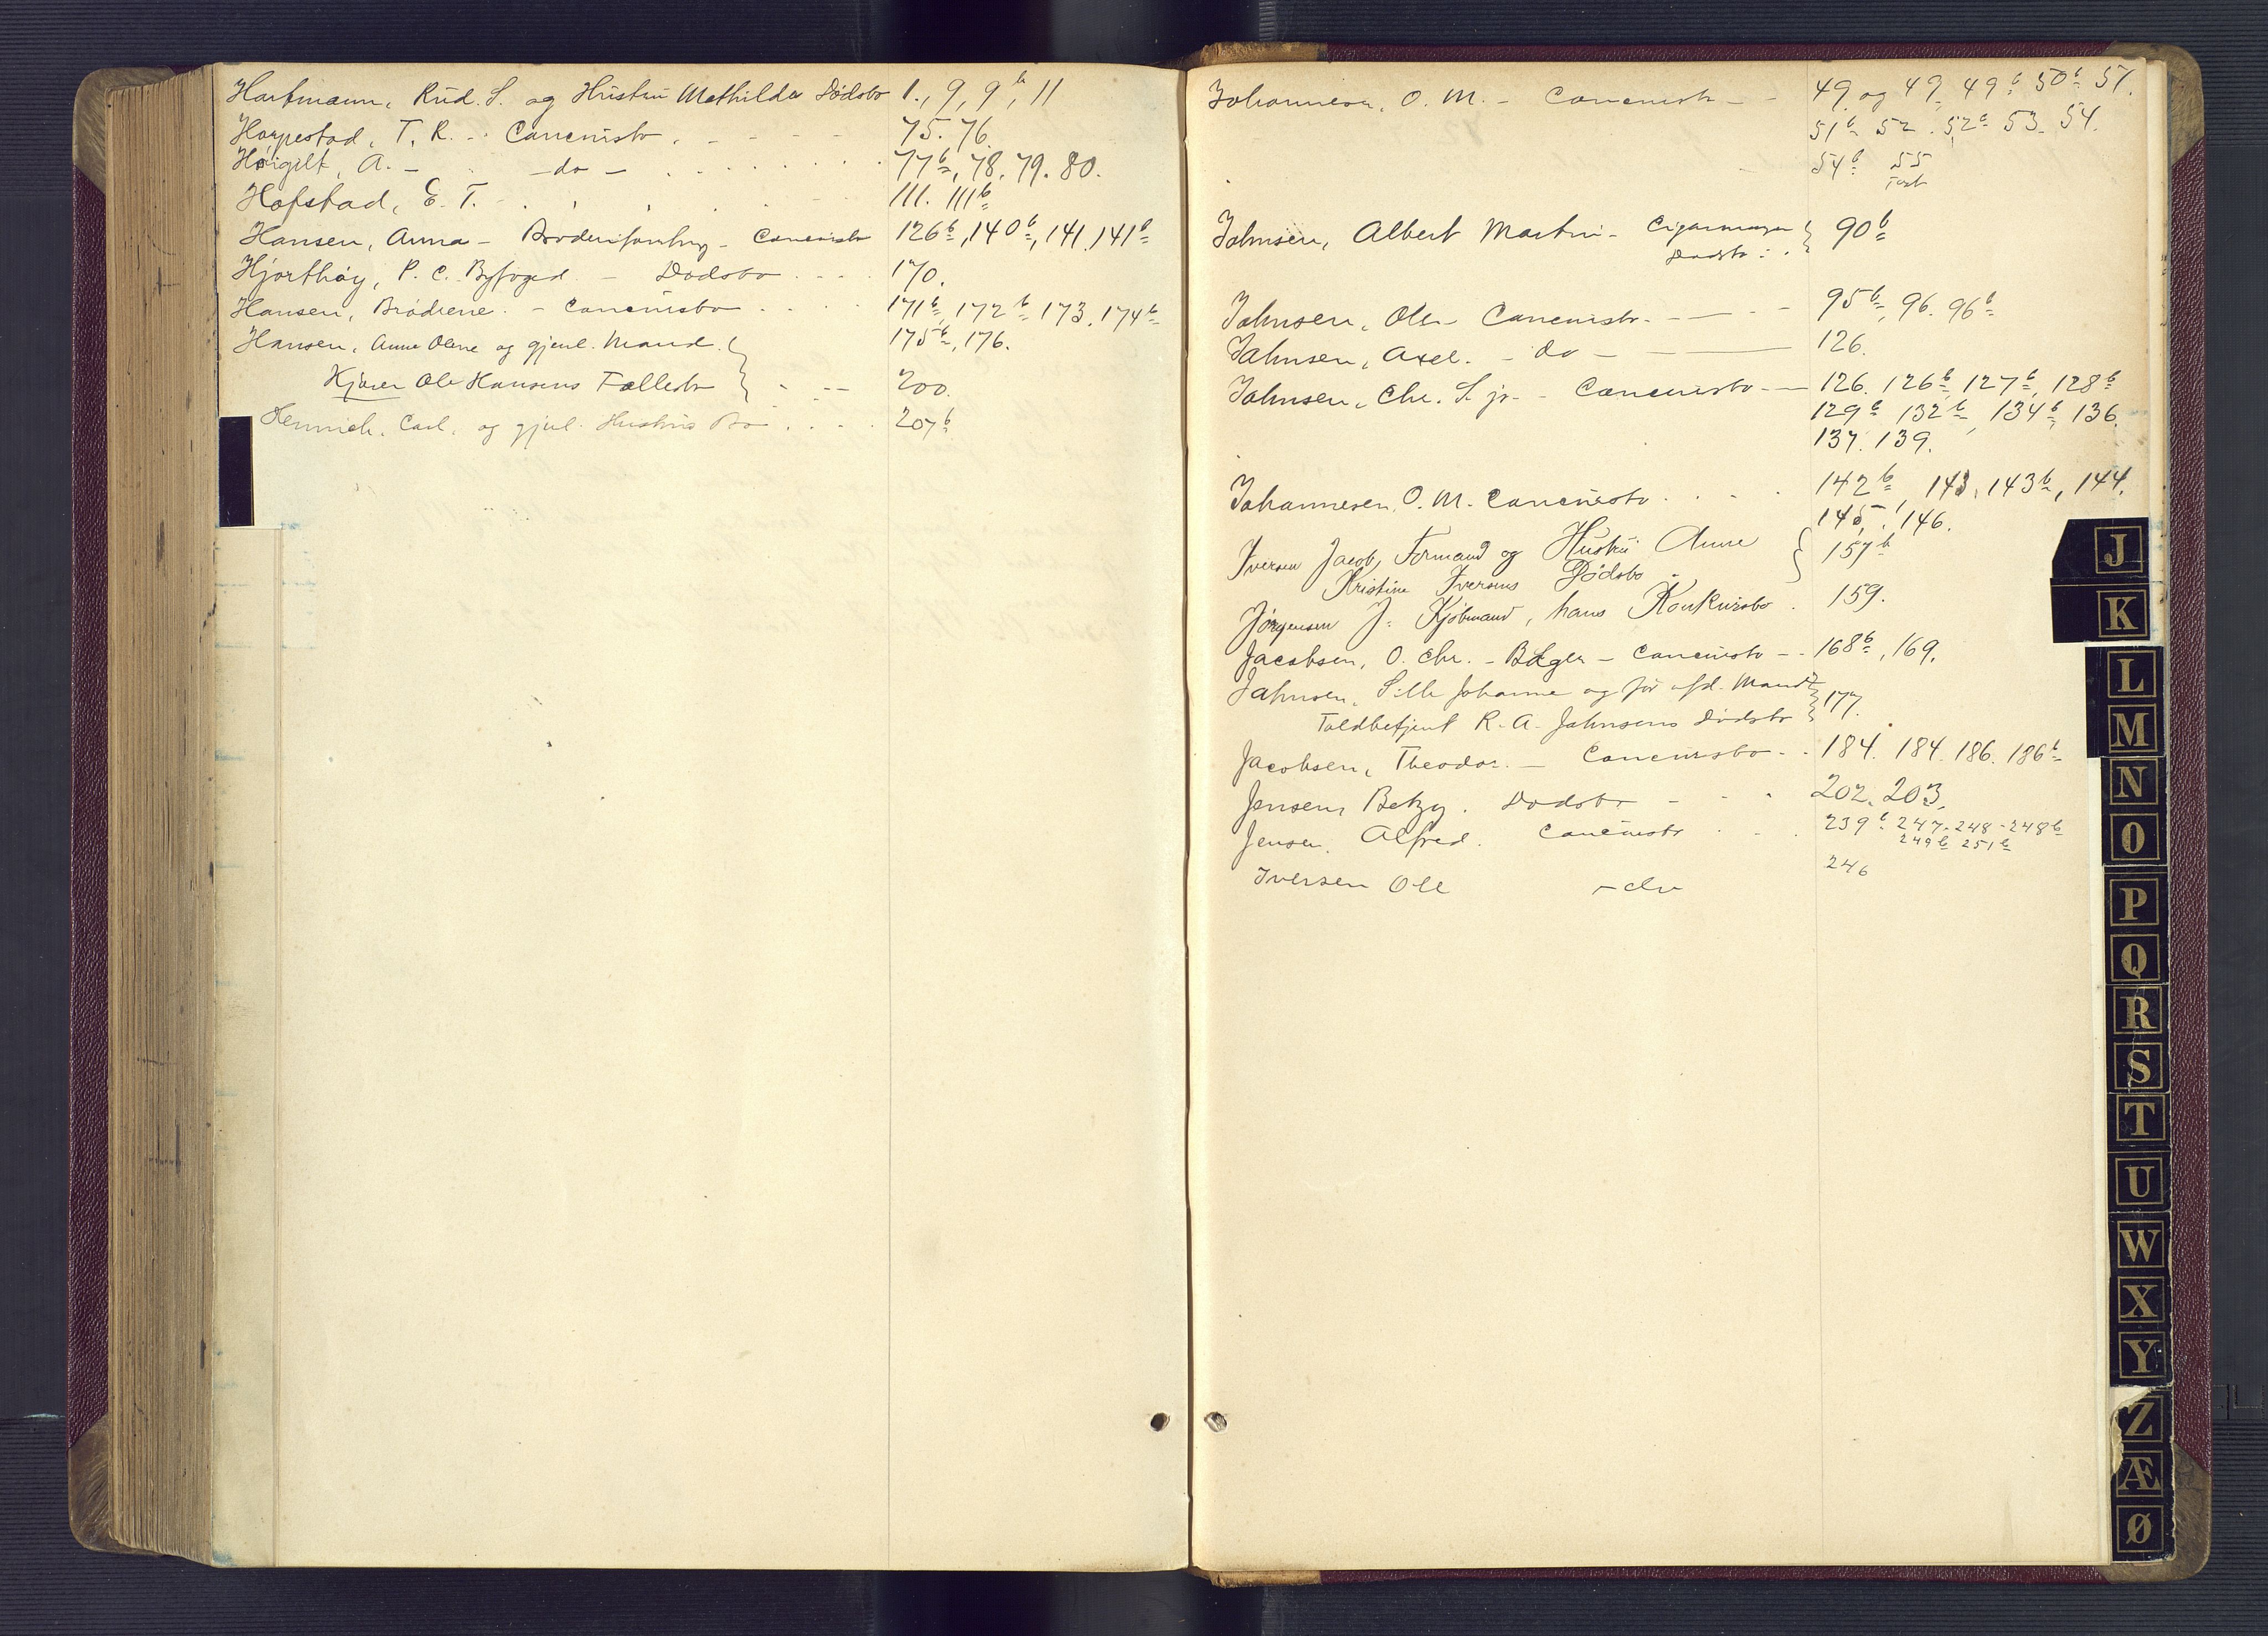 Hartmann, Rud. S. og Hustru Mathildes Dødsbo 1., 9, 9b, 11
Harpestad, T. R. - Concursbo. 75. 76.
Høigilt, A. - do - 77b, 78. 79. 80.
Hofstad, E. T. 111. 111b
Hansen, Anna - Broderiforretng - Concursbo 126b, 140b, 141. 141b
Hjorthøy, P. C. Byfoged - Dødsbo 170.
Hansen, Brødrene. - Concursbo 171b, 172b, 173. 174b
Hansen, Anne Oline og gjenl. Mand 175b, 176.
Kjører Ole Hansens Fællesbo 200.
Hennich, Carl, og gjenl. Hustrus Bo 207b
Johannesen, O. M. - Concursbo - 49. og 49. 49b. 50b. 51.
51b. 52. 52b. 53. 54.
54b. 55
Johnsen, Albert Martin - Cigarmager
Dødsbo 90b
Johnsen, Ole - Concursbo. 95b, 96. 96b
Johnsen, Axel. - do - 126.
Johnsen, Chr. S. jr. - Concursbo - 126. 126b, 127b, 128b
129b 132b, 134b, 136.
137. 139.
Johannesen, O. M. Concursbo 142b, 143, 143b, 144.
145, 146.
Iversen Jacob, Formand og Hustru Anne 157b
Kristine Iversens Dødsbo
Jørgensen J. Kjøbmand, hans Konkursbo. 159.
Jacobsen, O. Chr. - Bager - Concursbo - 168b, 169.
Johnsen, Johanne og før afd. Mand
Toldbetjent R. A. Johnsens Dødsbo 177.
Jacobsen, Theodor. - Concursbo. 184. 184. 186. 186b
Jensen, Betzy. Dødsbo - 202. 203.
Jensen, Alfred. Concursbo 239b. 247. 248 - 248b
249b 251b
Iversen Ole - do 246
J
K
L
M
N
O
P
Q
R
S
T
U
W
X
Y
Z
Æ
Ø